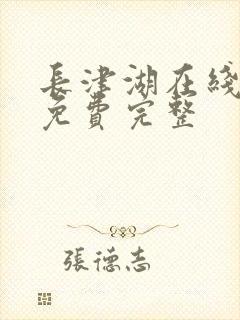 長津湖在綫
免費完整
張德志